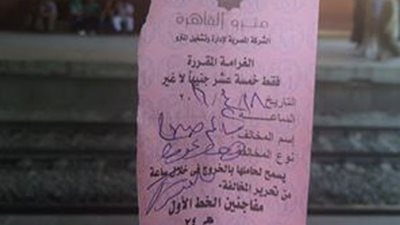 مترو القاهرة
الشركة المصرية لإدارة وتشغيل المترو
الغرامة المقررة
فقط خمسة عشر جنيهاً لا غير
التاريخ
الساعة
إسم المخالف
نوع المخالفة
يسمح لحاملها بالخروج في خلال ساعة
من تحرير المخالفة
مفاجئين الخط الأول